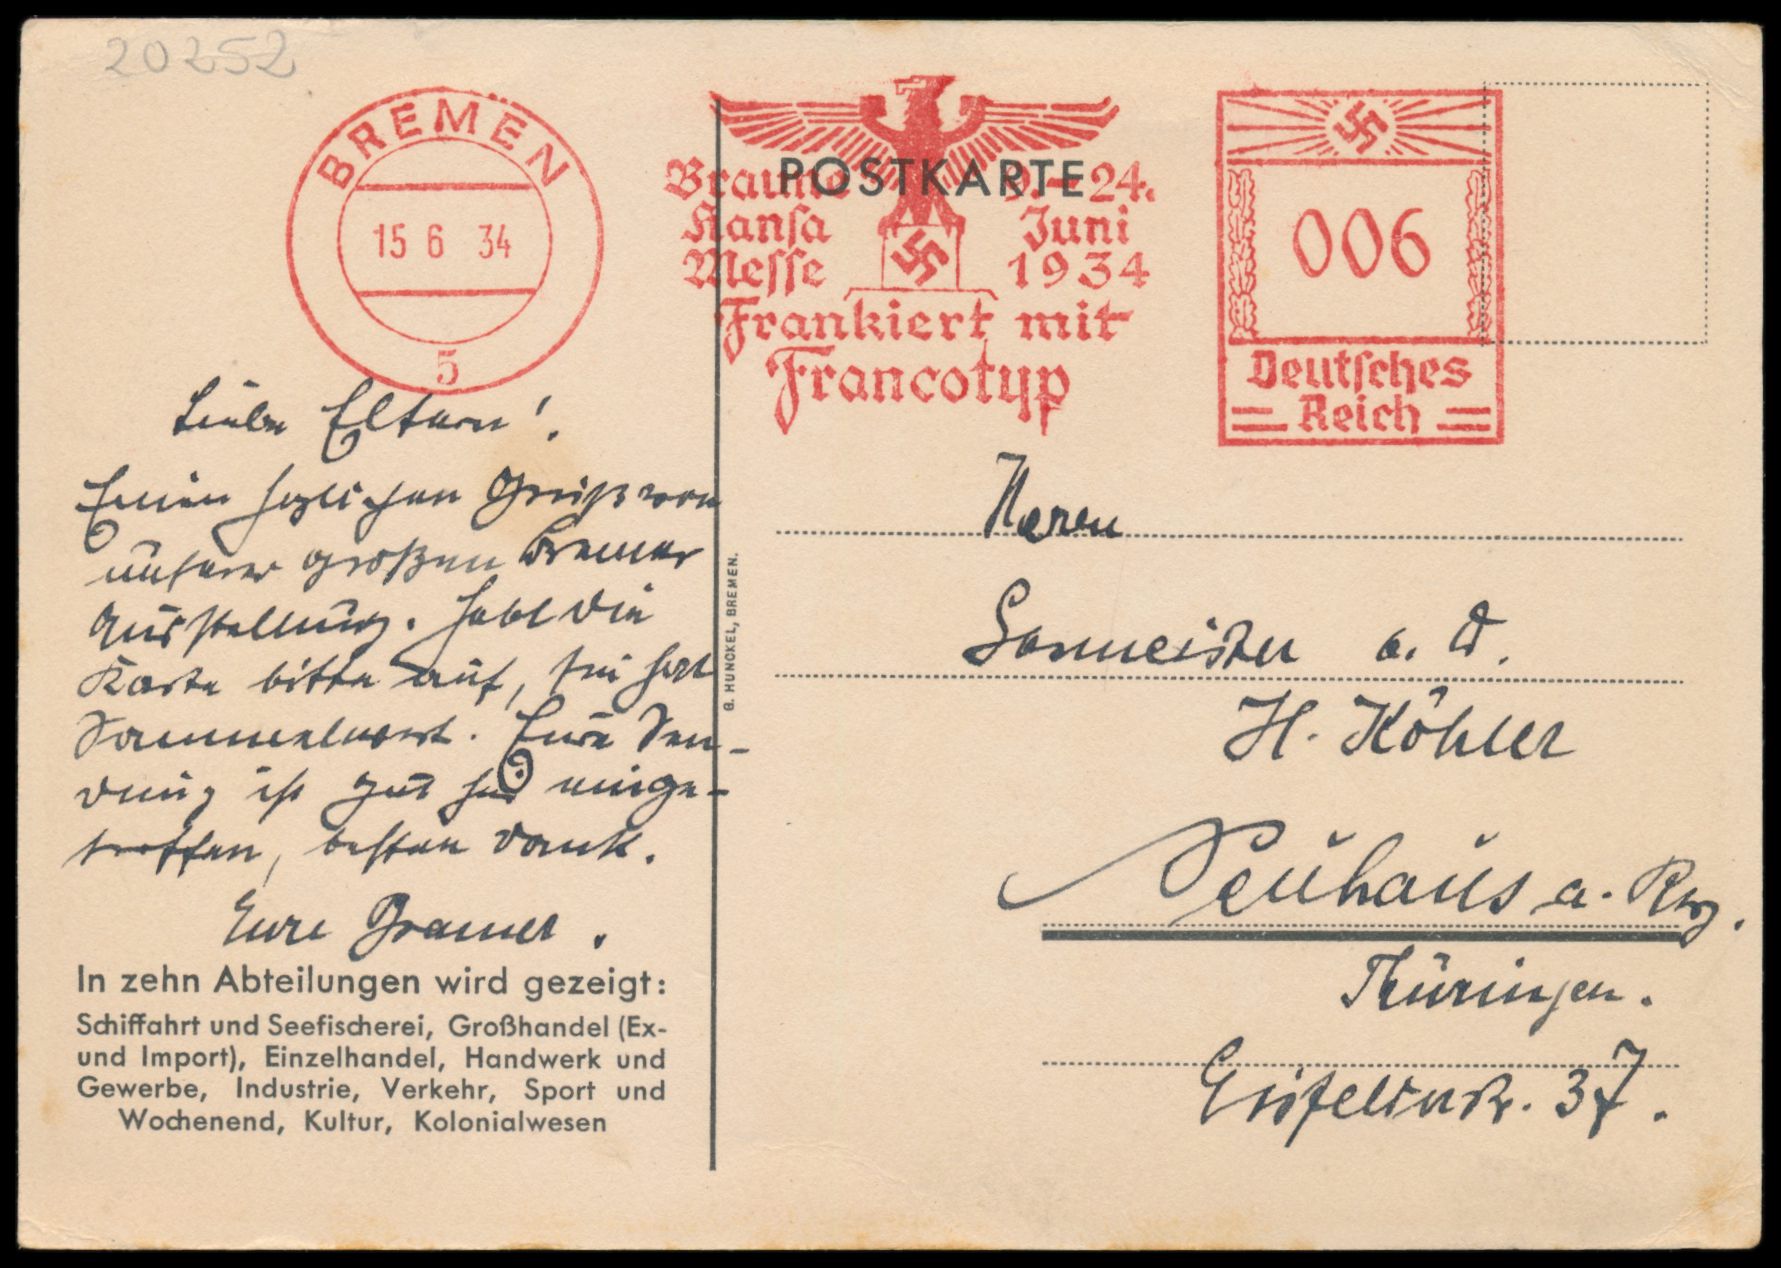 20252
BREMEN
15 6 34
5
Braune
Hansa
Messe
9.–24.
Juni
1934
Frankiert mit
Francotyp
POSTKARTE
006
Deutsches
Reich
Liebe Eltern!
Einen herzlichen Gruß von
unserer großen Bremer
Ausstellung. Hebt die
Karte bitte auf, sie hat
Sammelwert. Eure Sen-
dung ist gut hier einge-
troffen, besten Dank.
Eure Bremer.
In zehn Abteilungen wird gezeigt:
Schiffahrt und Seefischerei, Großhandel (Ex-
und Import), Einzelhandel, Handwerk und
Gewerbe, Industrie, Verkehr, Sport und
Wochenend, Kultur, Kolonialwesen
G. HUNCKEL, BREMEN.
Herrn
a. D.
H. Köhler
Neuhaus a. Rwg.
Thüringen.
Eisfelderstr. 37.